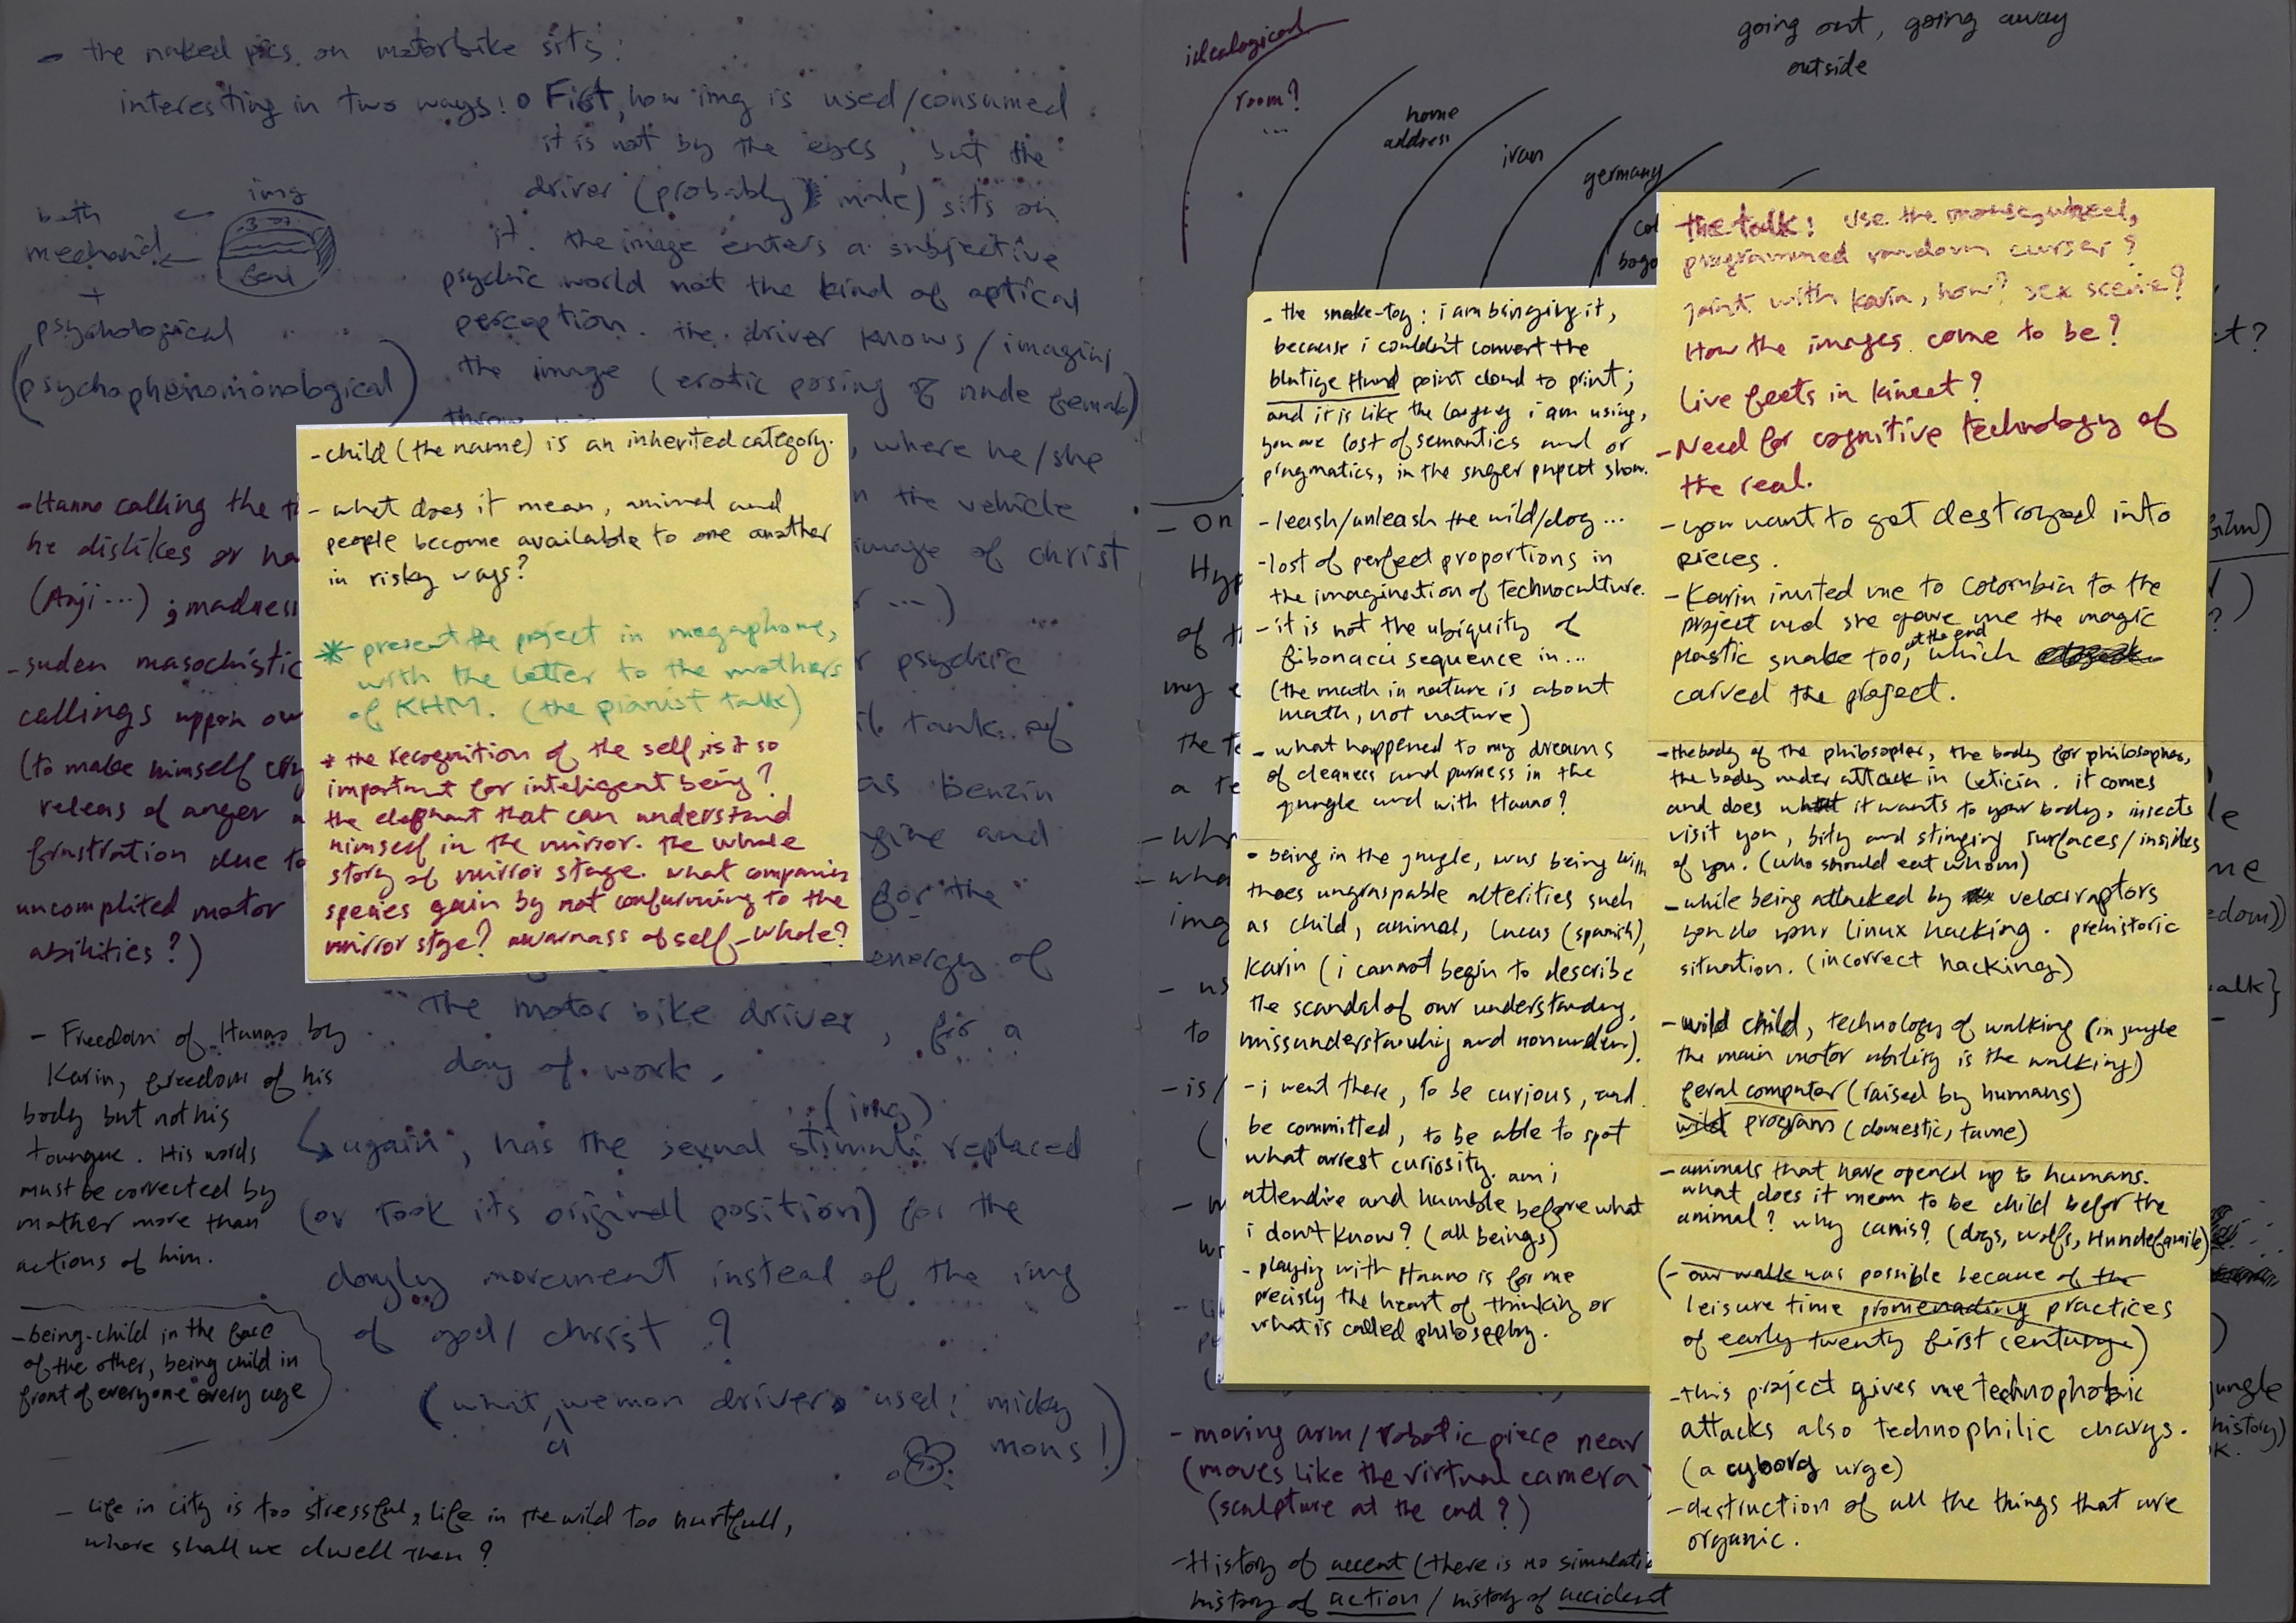 - the naked pics on motorbike sits:
interesting in two ways: o First, how img is used/consumed
it is not by the eyes, but the
driver (probably male) sits on
it. the image enters a subjective
psychic world not the kind of optical
perception. the driver knows/imaging
the image (erotic posing of nude female)
, where he/she
the vehicle
image of christ
...)
psychic
tank of
as benzin
and
for the
energy of
the motor bike driver, for a
day of work.
(img)
↳ again, has the sexual stimuli replaced
(or took its originall position) for the
dayly movement instead of the img
of god/christ?
(what a wemon drivers used: micky
mous!)
img
both
mechanic
+
psychological
(psychophenomonological)
- Hanno calling the
he dislikes or
(Anji...); madness
- suden masochistic
callings uppon
(to make himself cry
releas of anger
frustration due to
uncomplited motor
abilities?)
- Freedom of Hanno by
Karin, freedom of his
body but not his
toungue. His words
must be corrected by
mother more than
actions of him.
- being-child in the face
of the other, being child in
front of everyone every age
- life in city is too stressful, life in the wild too hurtfull,
where shall we dwell then?
- child (the name) is an inherited category.
- what does it mean, animal and
people become available to one another
in risky ways?
* present the project in megaphone,
with the letter to the mothers
of KHM. (the pianist talk)
* the recognition of the self, is it so
important for inteligent being?
the elephant that can understand
himself in the mirror. the whole
story of mirror stage. what companion
species gain by not confurming to the
mirror stge? awarnass of self-whole?
idealogical
room?
...
home
address
iran
germany
going out, going away
outside
- the snake-toy: i am binging it,
because i couldn't convert the
blutige Hund point cloud to print;
and it is like the i am using,
you are lost of semantics and or
pragmatics, in the puppet show.
- leash/unleash the wild/dog...
- lost of perfect proportions in
the imagination of technoculture.
- it is not the ubiquity of
fibonacci sequence in...
(the math in nature is about
math, not nature)
- what happened to my dreams
of cleaness and purness in the
jungle and with Hanno?
- being in the jungle, was being with
thoes ungraspable alterities such
as child, animal, Lucas (spanish),
Karin (i cannot begin to describe
the scandal of our understanding,
missunderstanding and nonunders).
- i went there, to be curious, and
be committed, to be able to spot
what arrest curiosity. am i
attendive and humble before what
i don't know? (all beings)
- playing with Hanno is for me
precisly the heart of thinking or
what is called philosophy.
- moving arm/robotic piece near
(moves like the virtual camera
(sculpture at the end?)
- History of accent (there is no
history of action / history of accident
the talk: use the mouse, wheel,
programmed random curser?
joint with Karin, how? sex scene?
How the images come to be?
live feets in kinect?
- Need for cognitive technology of
the real.
- you want to get destroyed into
pieces.
- Karin invited me to Colombia to the
project and she gave me the magic
plastic snake too, at the end which
carved the project.
- the body of the philosopher, the body for philosopher,
the body under attack in Leticia. it comes
and does what it wants to your body, insects
visit you, bity and stinging surfaces/insides
of you. (who should eat whom)
- while being attacked by velociraptors
you do your linux hacking. prehistoric
situation. (incorrect hacking)
- wild child, technology of walking (in jungle
the main motor ability is the walking)
feral computer (raised by humans)
wild program (domestic, tame)
- animals that have opened up to humans.
what does it mean to be child befor the
animal? why canis? (dogs, wolfs, Hundefamilie)
(- our walk was possible because of the
leisure time promenading practices
of early twenty first century)
- this project gives me technophobic
attacks also technophilic chargs.
(a cyborg urge)
- destruction of all the things that are
organic.